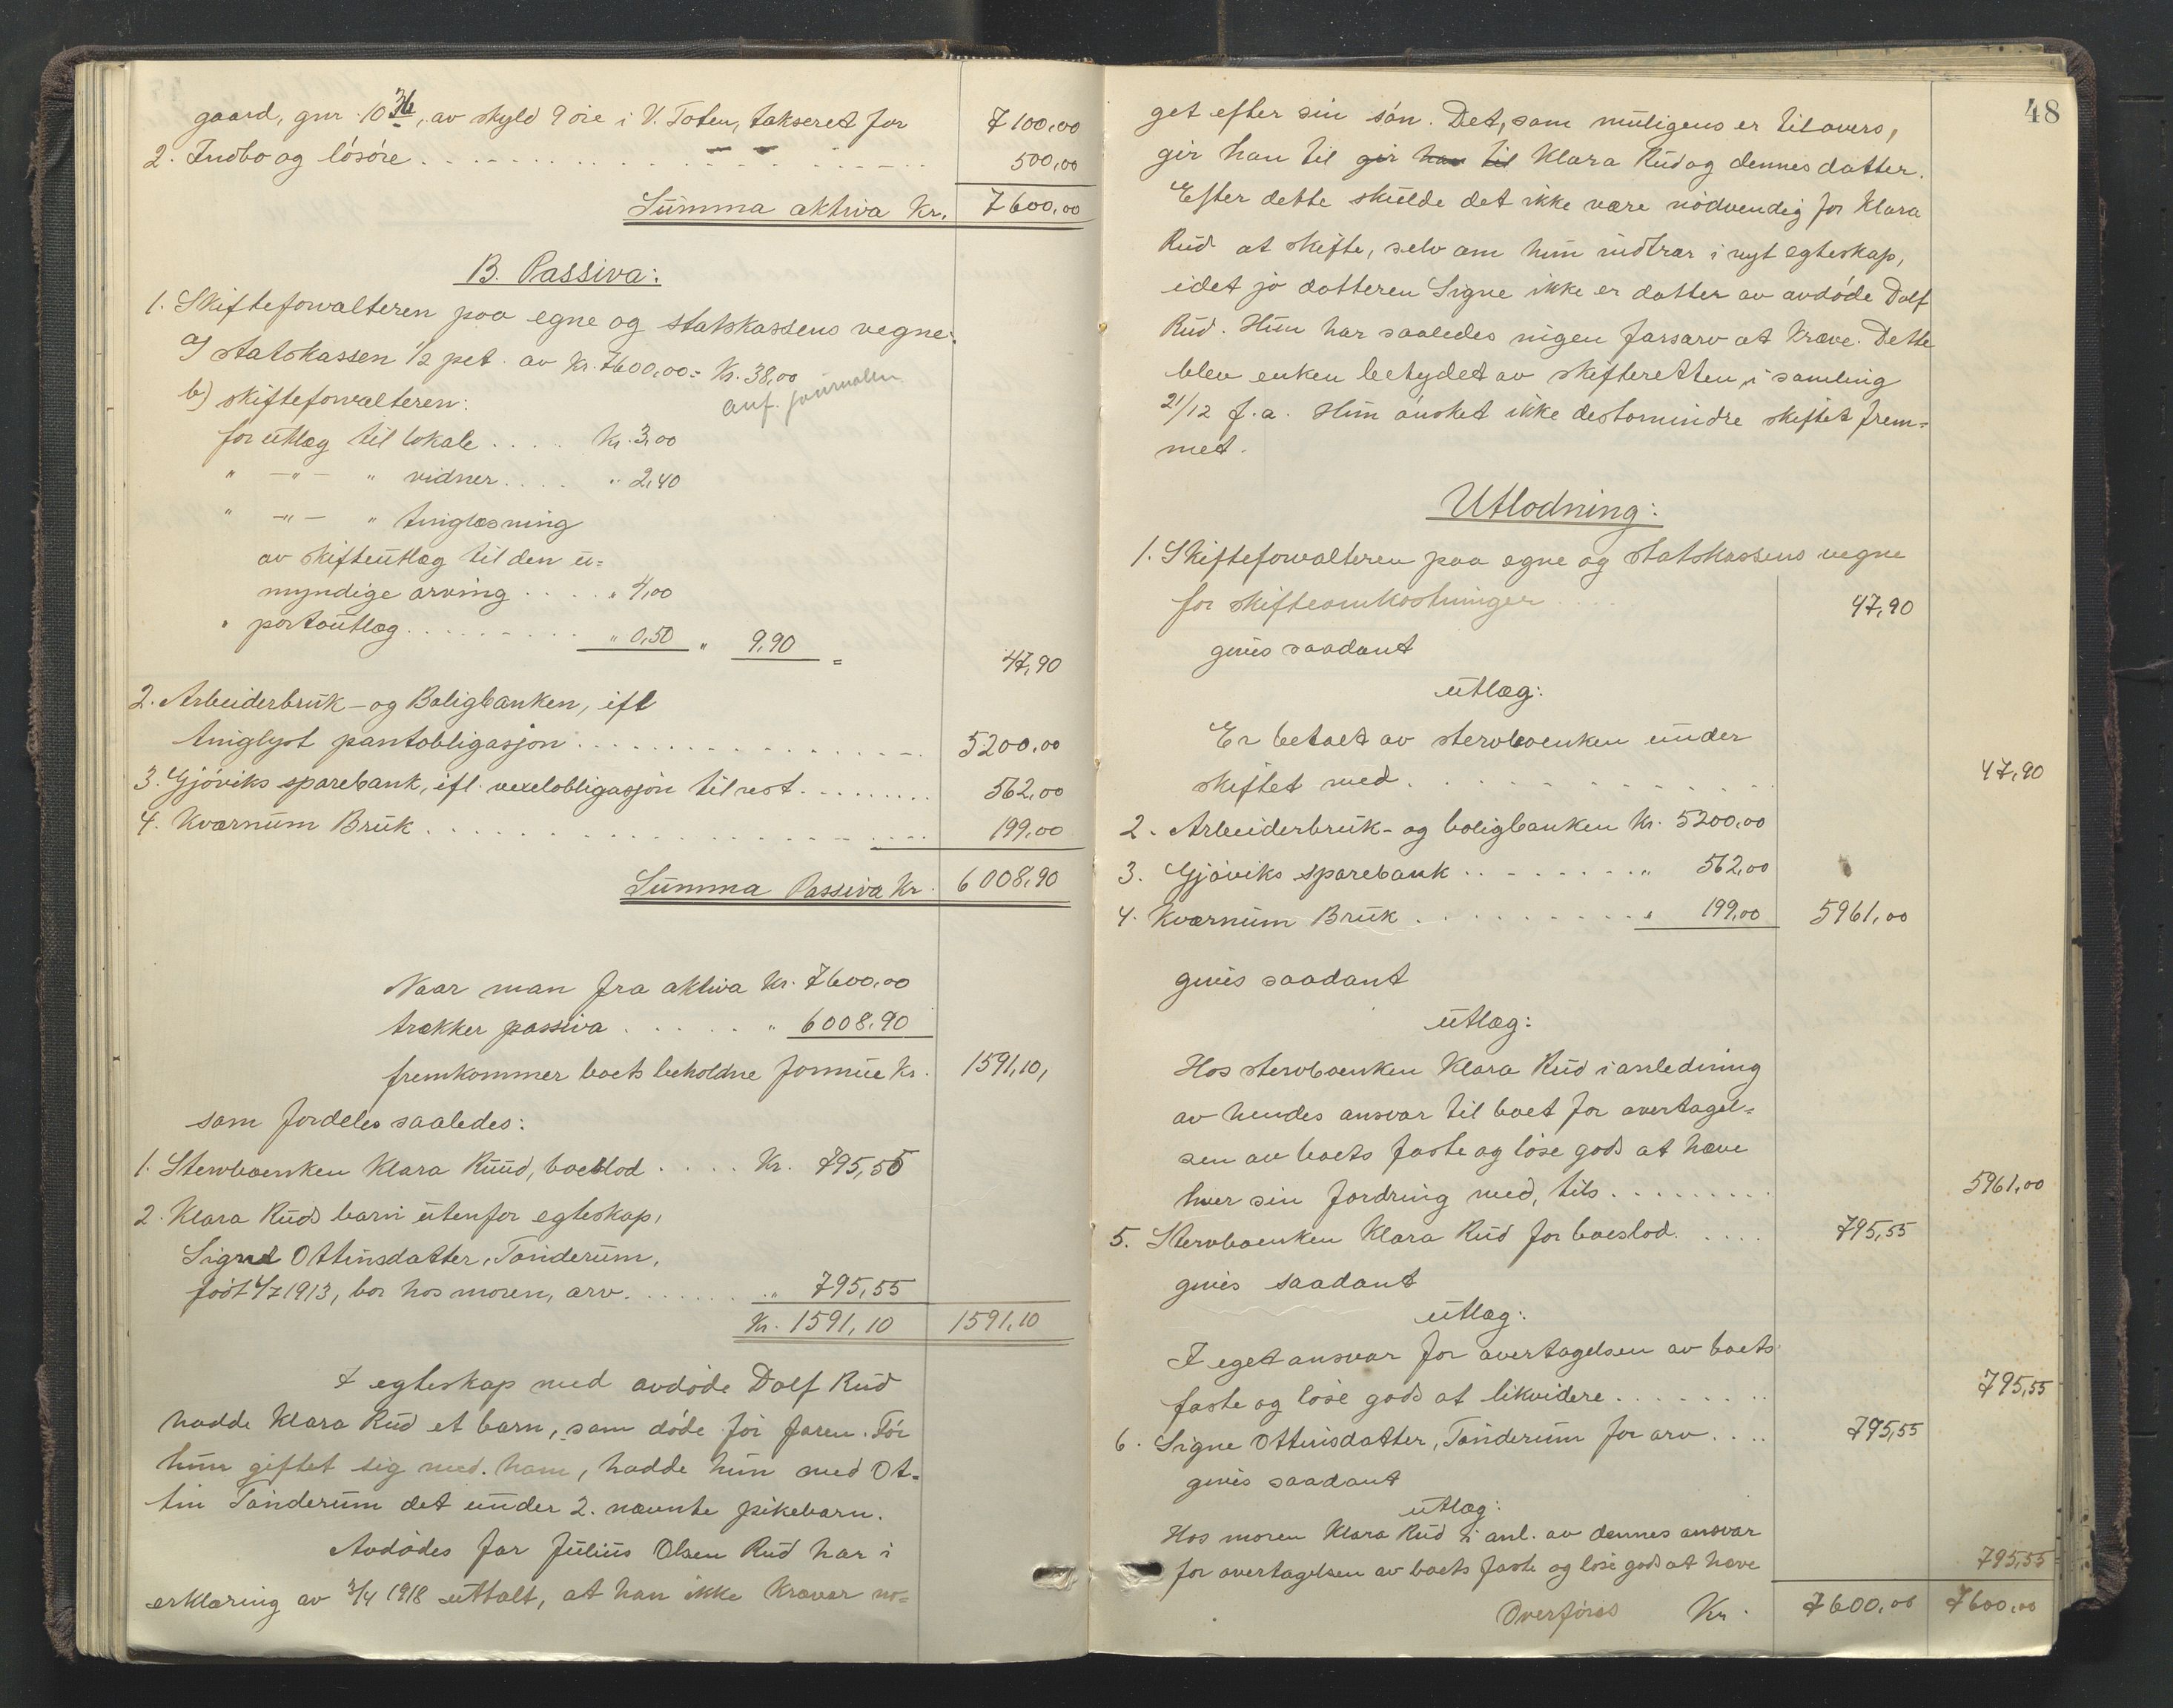 gaard, gnr. 10 36, av skyld 9 øre i V. Toten, takseret for 7100,00
2. Indbo og løsøre . . . . . 500,00
Summa aktiva Kr. 7600,00
B. Passiva:
1. Skifteforvalteren paa egne og statskassens vegne:
a) statskassen 1/2 pct. av Kr. 7600,00 = Kr. 38,00
anf. journalen
b) skifteforvalteren:
for utlæg til lokale . . . . Kr. 3,00
" —"— " vidner . . . . " 2,40
" —"— " tinglæsning
av skifteutlæg til den u=
myndige arving . . . . . " 4,00
" portoutlæg . . . . . . . . " 0,50 " 9,90 = 47,90
2. Arbeiderbruk- og Boligbanken, ifl
tinglyst pantobligasjon . . . . . 5200,00
3. Gjøviks sparebank, ifl. vexelobligasjon til rest . . . . . 562,00
4. Kværnum Bruk . . . . . 199,00
Summa Passiva Kr. 6008,90
Naar man fra aktiva Kr. 7600,00
trækker passiva . . . . . " 6008,90
fremkommer boets beholdne formue Kr. 1591,10,
som fordeles saaledes:
1. Stervboenken Klara Ruud, boeslod . . . . Kr. 795,55
2. Klara Ruds barn utenfor egteskap,
Signe Ottinsdatter, Tønderum,
født 4/7 1913, bor hos moren, arv . . . . . " 795,55
Kr. 1591,10 1591,10
I egteskap med avdøde Dolf Rud
hadde Klara Rud et barn, som døde før faren. Før
hun giftet sig med ham, hadde hun med Ot=
tin Tønderum det under 2. nævnte pikebarn.
Avdødes far Julius Olsen Rud har i
erklæring av 3/4 1918 uttalt, at han ikke kræver no=
48
get efter sin søn. Det, som muligens er tilovers,
gir han til gir han til Klara Rud og dennes datter.
Efter dette skulde det ikke være nødvendig for Klara
Rud at skifte, selv om hun indtrær i nyt egteskap,
idet jo datteren Signe ikke er datter av avdøde Dolf
Rud. Hun har saaledes ingen farsarv at kræve. Dette
blev enken betydet av skifteretten i samling
21/12 f.a. Hun ønsket ikke destomindre skiftet frem=
met.
Utlodning:
1. Skifteforvalteren paa egne og statskassens vegne
for skifteomkostninger . . . . 47,90
gives saadant
utlæg:
Er betalt av stervboenken under
skiftet med . . . . . 47,90
2. Arbeiderbruk- og boligbanken Kr. 5200,00
3. Gjøviks sparebank . . . . . " 562,00
4. Kværnum Bruk . . . . . " 199,00 5961,00
gives saadant
utlæg:
Hos stervboenken Klara Rud i anledning
av hendes ansvar til boet for overtagel=
sen av boets faste og løse gods at hæve
hver sin fordring med, tils. . . . . . 5961,00
5. Stervboenken Klara Rud for boeslod . . . . . 795,55
gives saadant
utlæg:
I eget ansvar for overtagelsen av boets
faste og løse gods at likvidere . . . . . 795,55
6. Signe Ottinsdatter, Tønderum for arv . . . . 795,55
gives saadant
utlæg:
Hos moren Klara Rud i anl. av dennes ansvar
for overtagelsen av boets faste og løse gods at hæve 795,55
Overføres Kr. 7600,00 7600,00